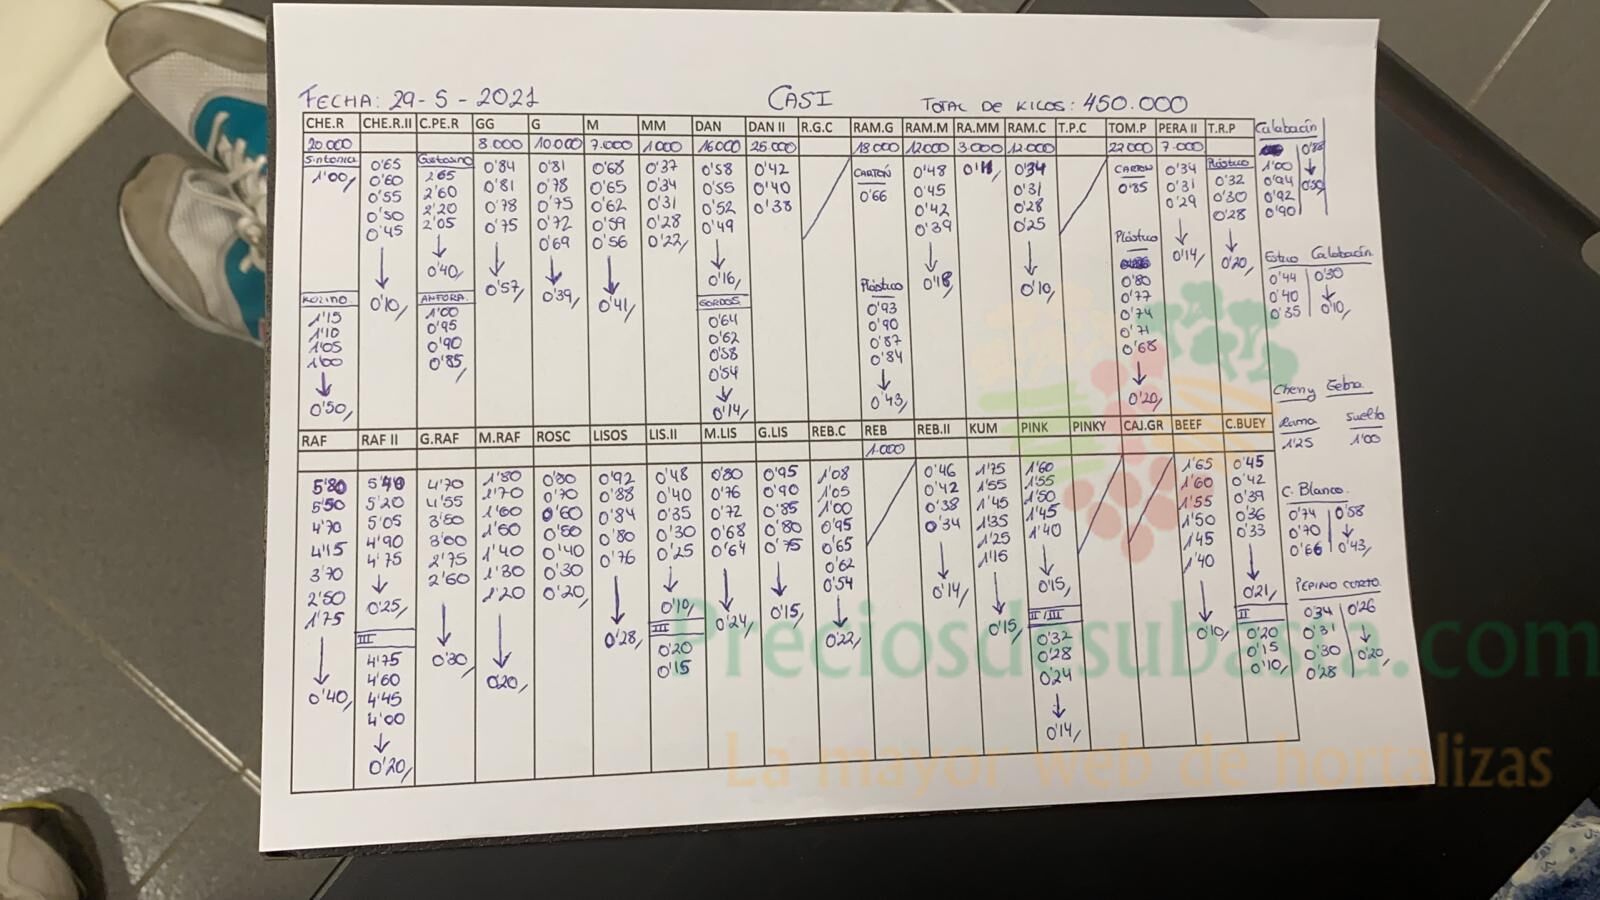 FECHA: 29-5-2021 CASI TOTAL DE KILOS: 450.000
CHE.R CHE.R.II C.PE.R GG G M MM DAN DAN II R.G.C RAM.G RAM.M RA.MM RAM.C T.P.C TOM.P PERA II T.R.P Calabacín
20.000 8.000 10.000 7.000 1.000 16.000 25.000 18.000 12.000 3.000 12.000 22.000 7.000
Sintonia
1'00,
ROZINO.
1'15
1'10
1'05
1'00
↓
0'50,
0'65
0'60
0'55
0'50
0'45
↓
0'10,
Gustosino
2'65
2'60
2'20
2'05
↓
0'40,
ANFORA.
1'00
0'95
0'90
0'85,
0'84
0'81
0'78
0'75
↓
0'57,
0'81
0'78
0'75
0'72
0'69
↓
0'39,
0'68
0'65
0'62
0'59
0'56
↓
0'41,
0'37
0'34
0'31
0'28
0'22,
0'58
0'55
0'52
0'49
↓
0'16,
GORDOS
0'64
0'62
0'58
0'54
↓
0'14,
0'42
0'40
0'38
CARTÓN
0'66
Plástico
0'93
0'90
0'87
0'84
↓
0'43,
0'48
0'45
0'42
0'39
↓
0'18,
0'34
0'31
0'28
0'25
↓
0'10,
CARTON
0'85
Plástico
0'80
0'77
0'74
0'71
0'68
↓
0'20,
0'34
0'31
0'29
↓
0'14,
Plástico
0'32
0'30
0'28
↓
0'20,
1'00 ↓
0'94 0'50
0'92
0'90
Calabacín
0'44 0'30
0'40 ↓
0'35 0'10,
Cherry Zebra
Rama Suelto
1'25 1'00
RAF RAF II G.RAF M.RAF ROSC LISOS LIS.II M.LIS G.LIS REB.C REB REB.II KUM PINK PINKY CAJ.GR BEEF C.BUEY
1.000
5'80
5'50
4'70
4'15
3'70
2'50
1'75
↓
0'40,
5'20
5'05
4'90
4'75
↓
0'25,
III
4'75
4'60
4'45
4'00
↓
0'20,
4'70
4'55
3'50
3'00
2'75
2'60
↓
0'30,
1'80
1'70
1'60
1'50
1'40
1'30
1'20
↓
0'20,
0'80
0'70
0'60
0'50
0'40
0'30
0'20,
0'92
0'88
0'84
0'80
0'76
↓
0'28,
0'48
0'40
0'35
0'30
0'25
↓
0'10,
III
0'20
0'15
0'80
0'76
0'72
0'68
0'64
↓
0'24,
0'95
0'90
0'85
0'80
0'75
↓
0'15,
1'08
1'05
1'00
0'95
0'65
0'62
0'54
↓
0'22,
0'46
0'42
0'38
0'34
↓
0'14,
1'75
1'55
1'45
1'35
1'25
1'15
↓
0'15,
1'60
1'55
1'50
1'45
1'40
↓
0'15,
II/III
0'32
0'28
0'24
↓
0'14,
1'65
1'60
1'55
1'50
1'45
1'40
↓
0'10,
0'45
0'42
0'39
0'36
0'33
↓
0'21,
II
0'20
0'15
0'10,
C. Blanco.
0'74 0'58
0'70 ↓
0'66 0'43,
PEPINO CORTO.
0'34 0'26
0'31 ↓
0'30 0'20,
0'28
Preciosdesubasta.com
La mayor web de hortalizas